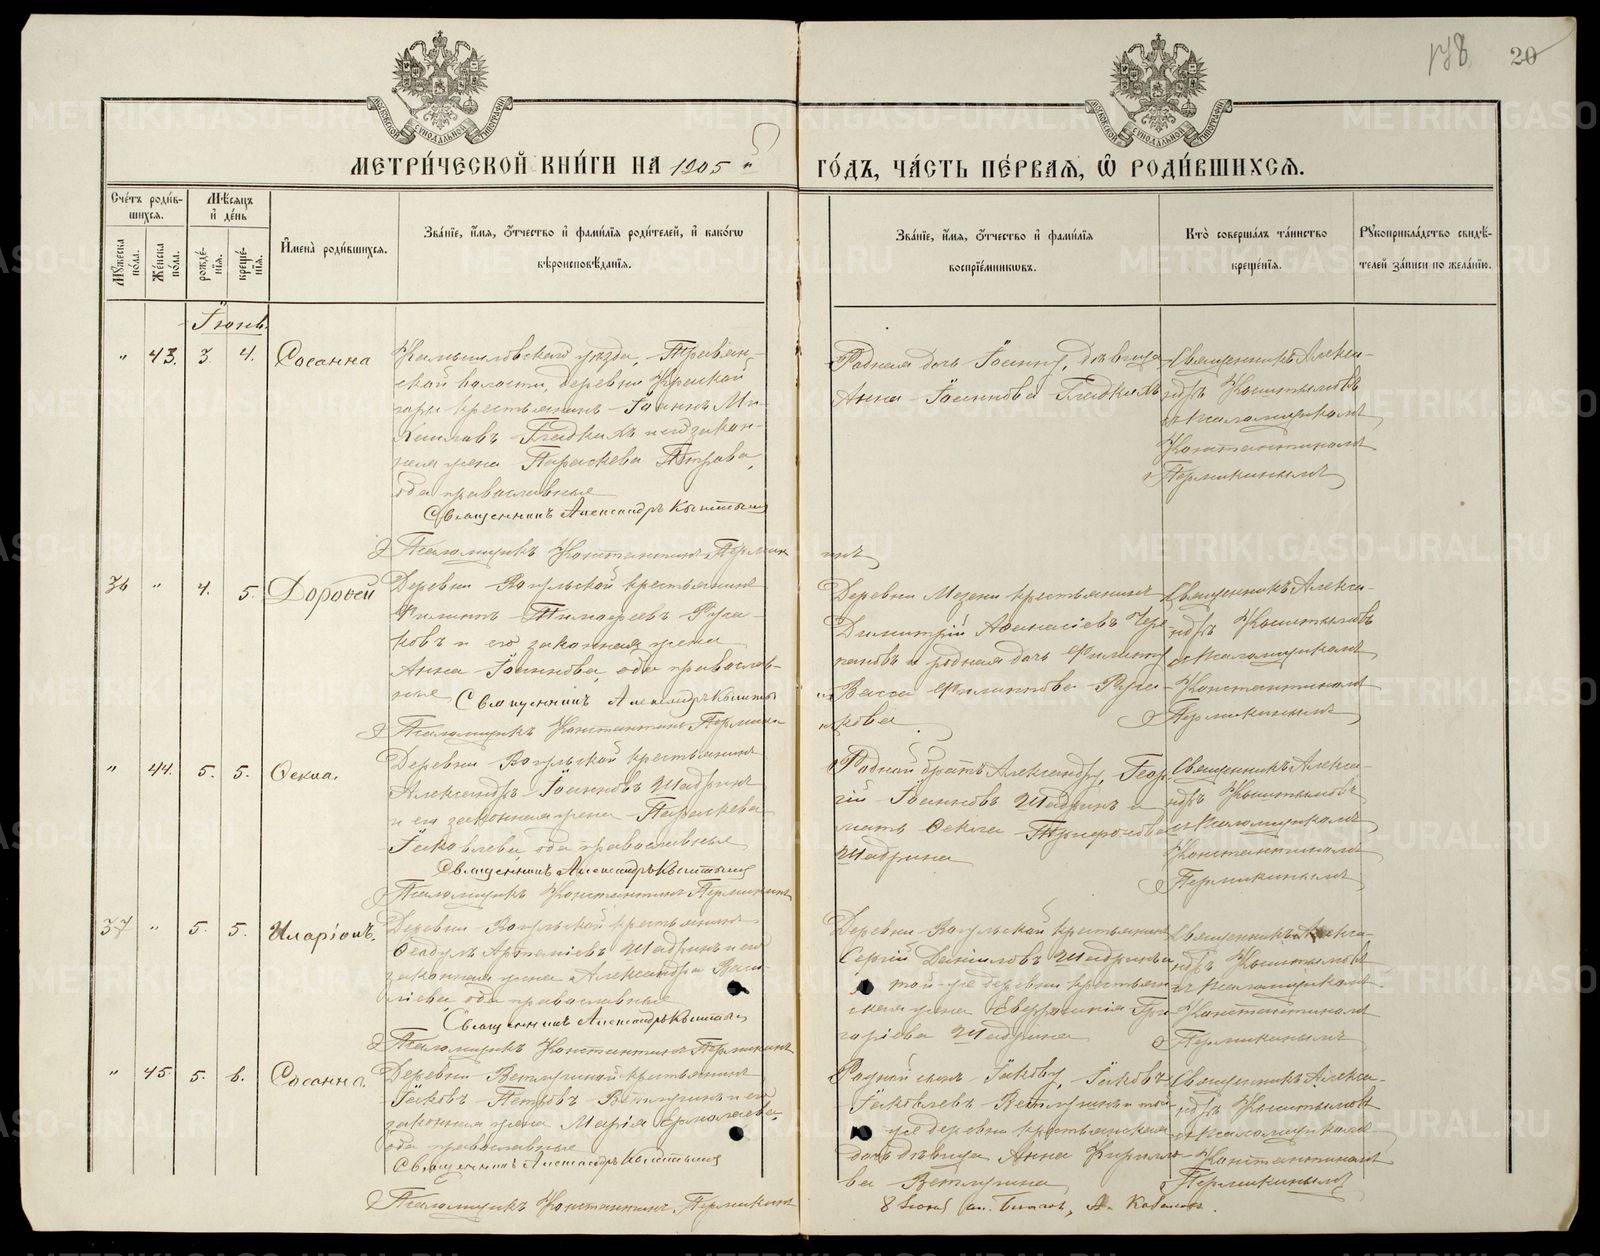 178 20
МОСКОВСКОЙ СУНОДАЛЬНОЙ ТИПОГРАФІИ
МОСКОВСКОЙ СУНОДАЛЬНОЙ ТИПОГРАФІИ
МЕТРИ́ЧЕСКОЙ КНИ́ГИ НА 1905 й
ГО́ДЪ, ЧА́СТЬ ПЕ́РВАѦ, Ѡ РОДИ́ВШИХСѦ.
Сче́тъ роди́вшихся.
Мѣ́сяцъ и де́нь
Мꙋ́жеска по́ла.
Же́нска по́ла.
рожде́нїя.
креще́нїя.
И҆мена̀ роди́вшихся.
Зва́нїе, и҆́мя, ѻ҆́тчество и҆ фами́лїя роди́телей, и҆ како́гѡ
вѣроисповѣ́данїя.
Зва́нїе, и҆́мя, ѻ҆́тчество и҆ фами́лїя
воспрїе́мникѡвъ.
Кто̀ соверша́лъ та́инство
креще́нїя.
Рꙋкоприкла́дство свидѣ́-
телей за́писи по жела́нїю.
Іюнь.
" 43. 3. 4. Сосанна
Камышловскаго уѣзда, Травян-
ской волости, деревни Красной
горы крестьянинъ Іоаннъ Ми-
хаиловъ Гладкихъ и его закон-
ная жена Параскева Петрова,
оба православные
Священникъ Александръ Кыштымов
Псаломщикъ Константинъ Пермикинъ
Родная дочь Іоанну, дѣвица
Анна Іоаннова Гладкихъ
Священникъ Алекса-
ндръ Кыштымовъ
съ псаломщикомъ
Константиномъ
Пермикинымъ
36 " 4. 5. Дороѳей
Деревни Вогульской крестьянинъ
Филиппъ Тимоѳеевъ Руса-
ковъ и его законная жена
Анна Іоаннова, оба православ-
ные Священникъ Александръ Кыштым
Псаломщикъ Константинъ Пермики
Деревни Мезени крестьянинъ
Димитрій Аѳанасіевъ Чере-
пановъ и родная дочь Филиппу
Васса Филиппова Руса-
кова
Священникъ Алекса-
ндръ Кыштымовъ
съ псаломщикомъ
Константиномъ
Пермикинымъ
" 44. 5. 5. Ѳекла.
Деревни Вогульской крестьянинъ
Александръ Іоанновъ Шадринъ
и его законная жена Параскева
Іаковлева, оба православные
Священникъ Александръ Кыштымов
Псаломщикъ Константинъ Пермикинъ
Родной братъ Александру, Геор-
гій Іоанновъ Шадринъ и
мать Ѳекла Трифонова
Шадрина
Священникъ Алекса-
ндръ Кыштымовъ
съ псаломщикомъ
Константиномъ
Пермикинымъ
37 " 5. 5. Иларіонъ.
Деревни Вогульской крестьянинъ
Ѳеодулъ Артеміевъ Шадринъ и его
законная жена Александра Васи-
ліева, оба православные
Священникъ Александръ Кыштымов
Псаломщикъ Константинъ Пермикинъ
Деревни Вогульской крестьянинъ
Сергій Даніиловъ Шадринъ и
той-же деревни крестьян-
ская жена Евфросинія Гри-
горіева Шадрина
Священникъ Алекса-
ндръ Кыштымовъ
съ псаломщикомъ
Константиномъ
Пермикинымъ
" 45. 5. 6. Сосанна.
Деревни Ветлугиной крестьянинъ
Іаковъ Петровъ Ветлугинъ и его
законная жена Марія Ермолаева,
оба православные
Священникъ Александръ Кыштымов
Псаломщикъ Константинъ Пермикинъ
Родной сынъ Іакову, Іаковъ
Іаковлевъ Ветлугинъ и той
же деревни крестьянская
дочь дѣвица Анна Кирилло-
ва Ветлугина
Священникъ Алекса-
ндръ Кыштымовъ
съ псаломщикомъ
Константиномъ
Пермикинымъ